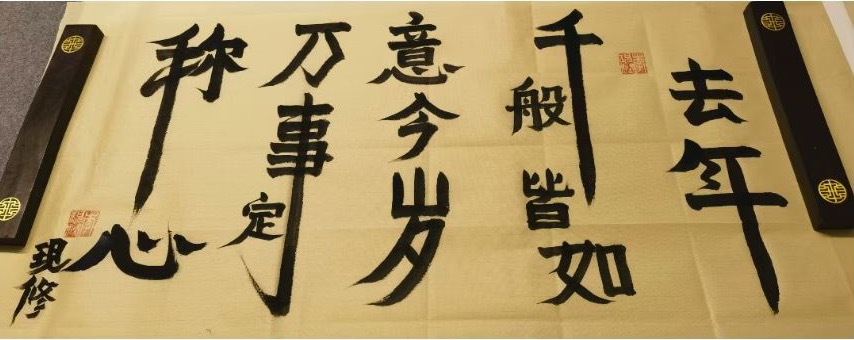 去年
千般皆如
意今岁
万事定
称心
现修